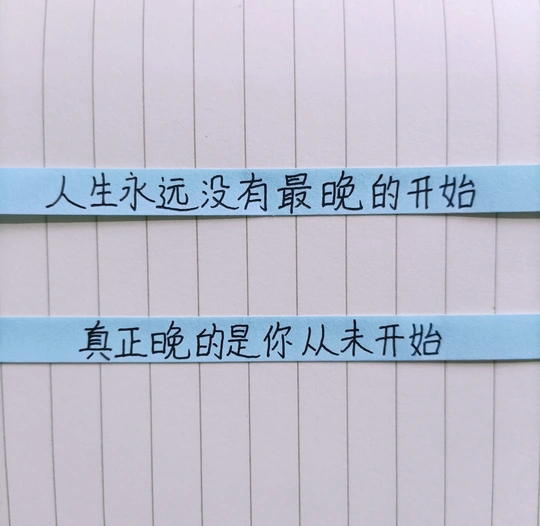 人生永远没有最晚的开始
真正晚的是你从未开始